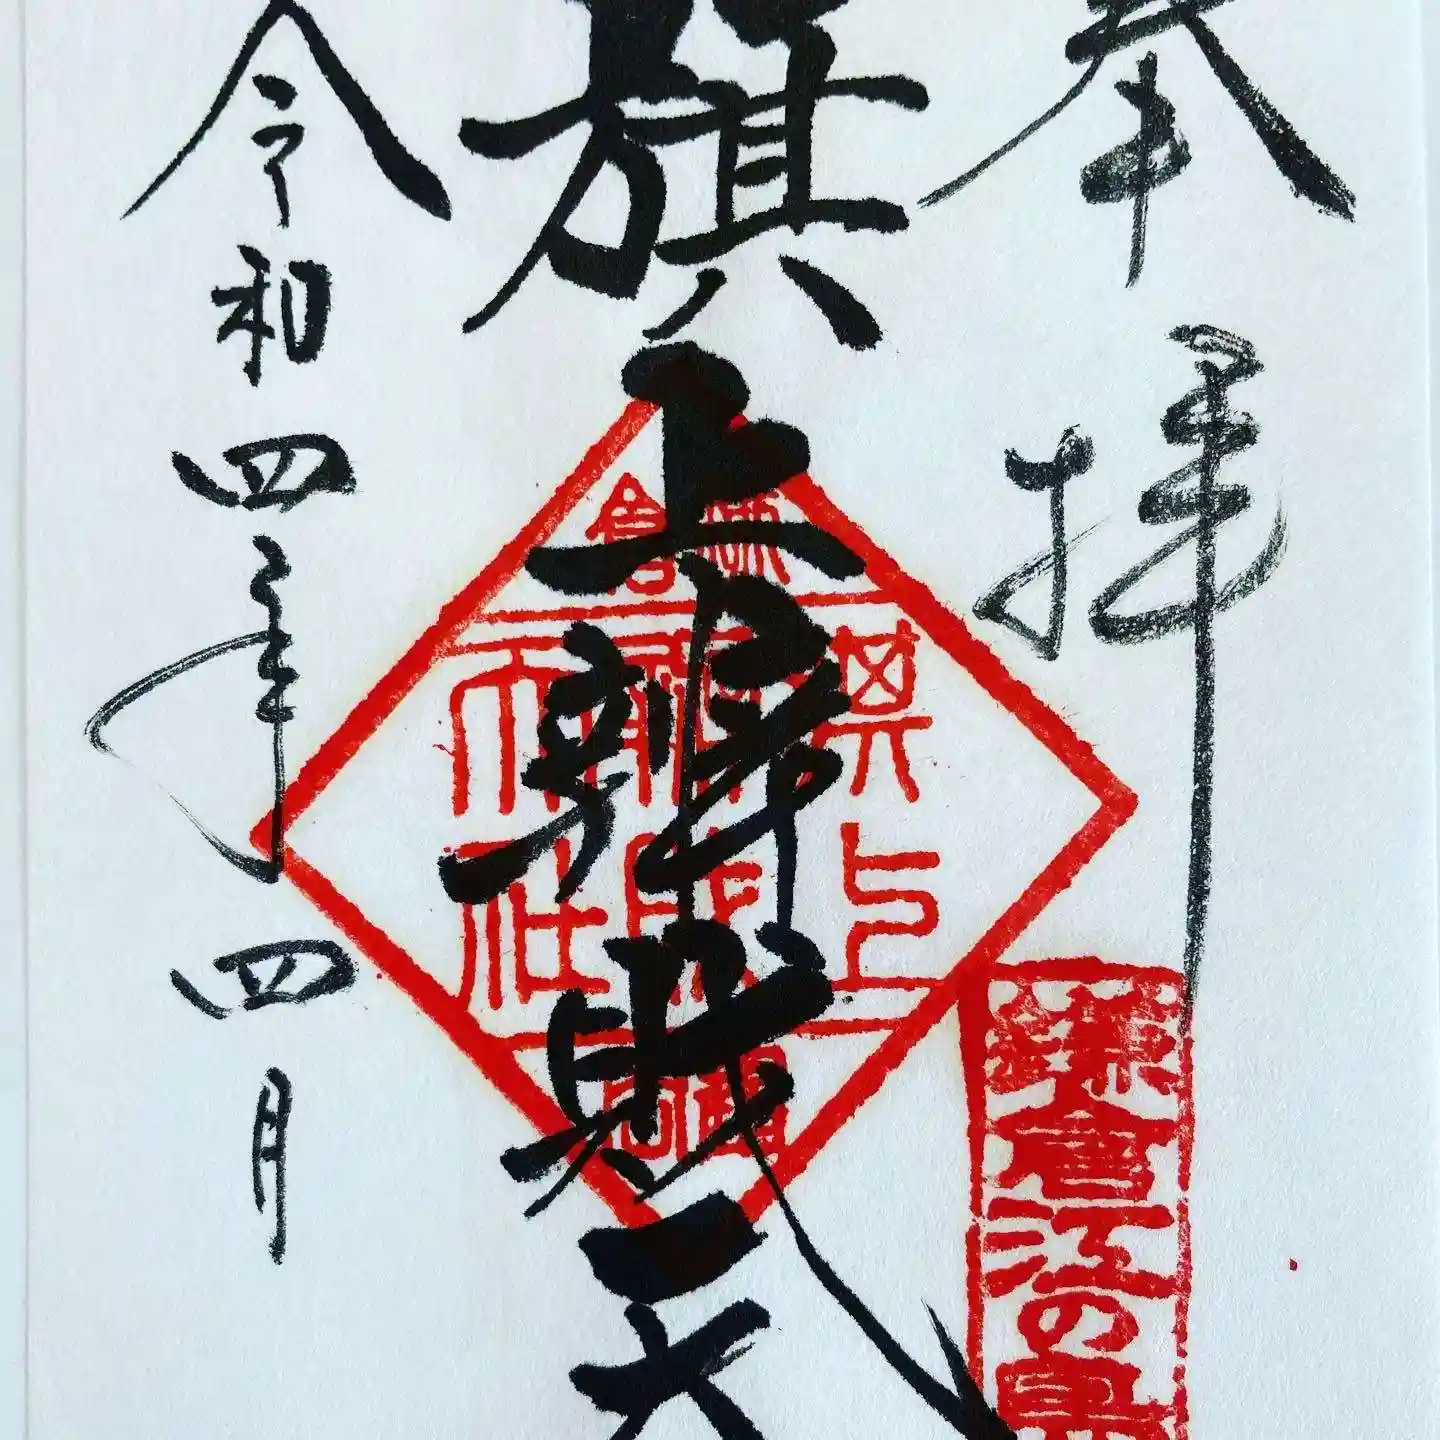 奉拝
鎌倉江の島
旗上辨財天
旗上
辨財
天社
令和四年四月